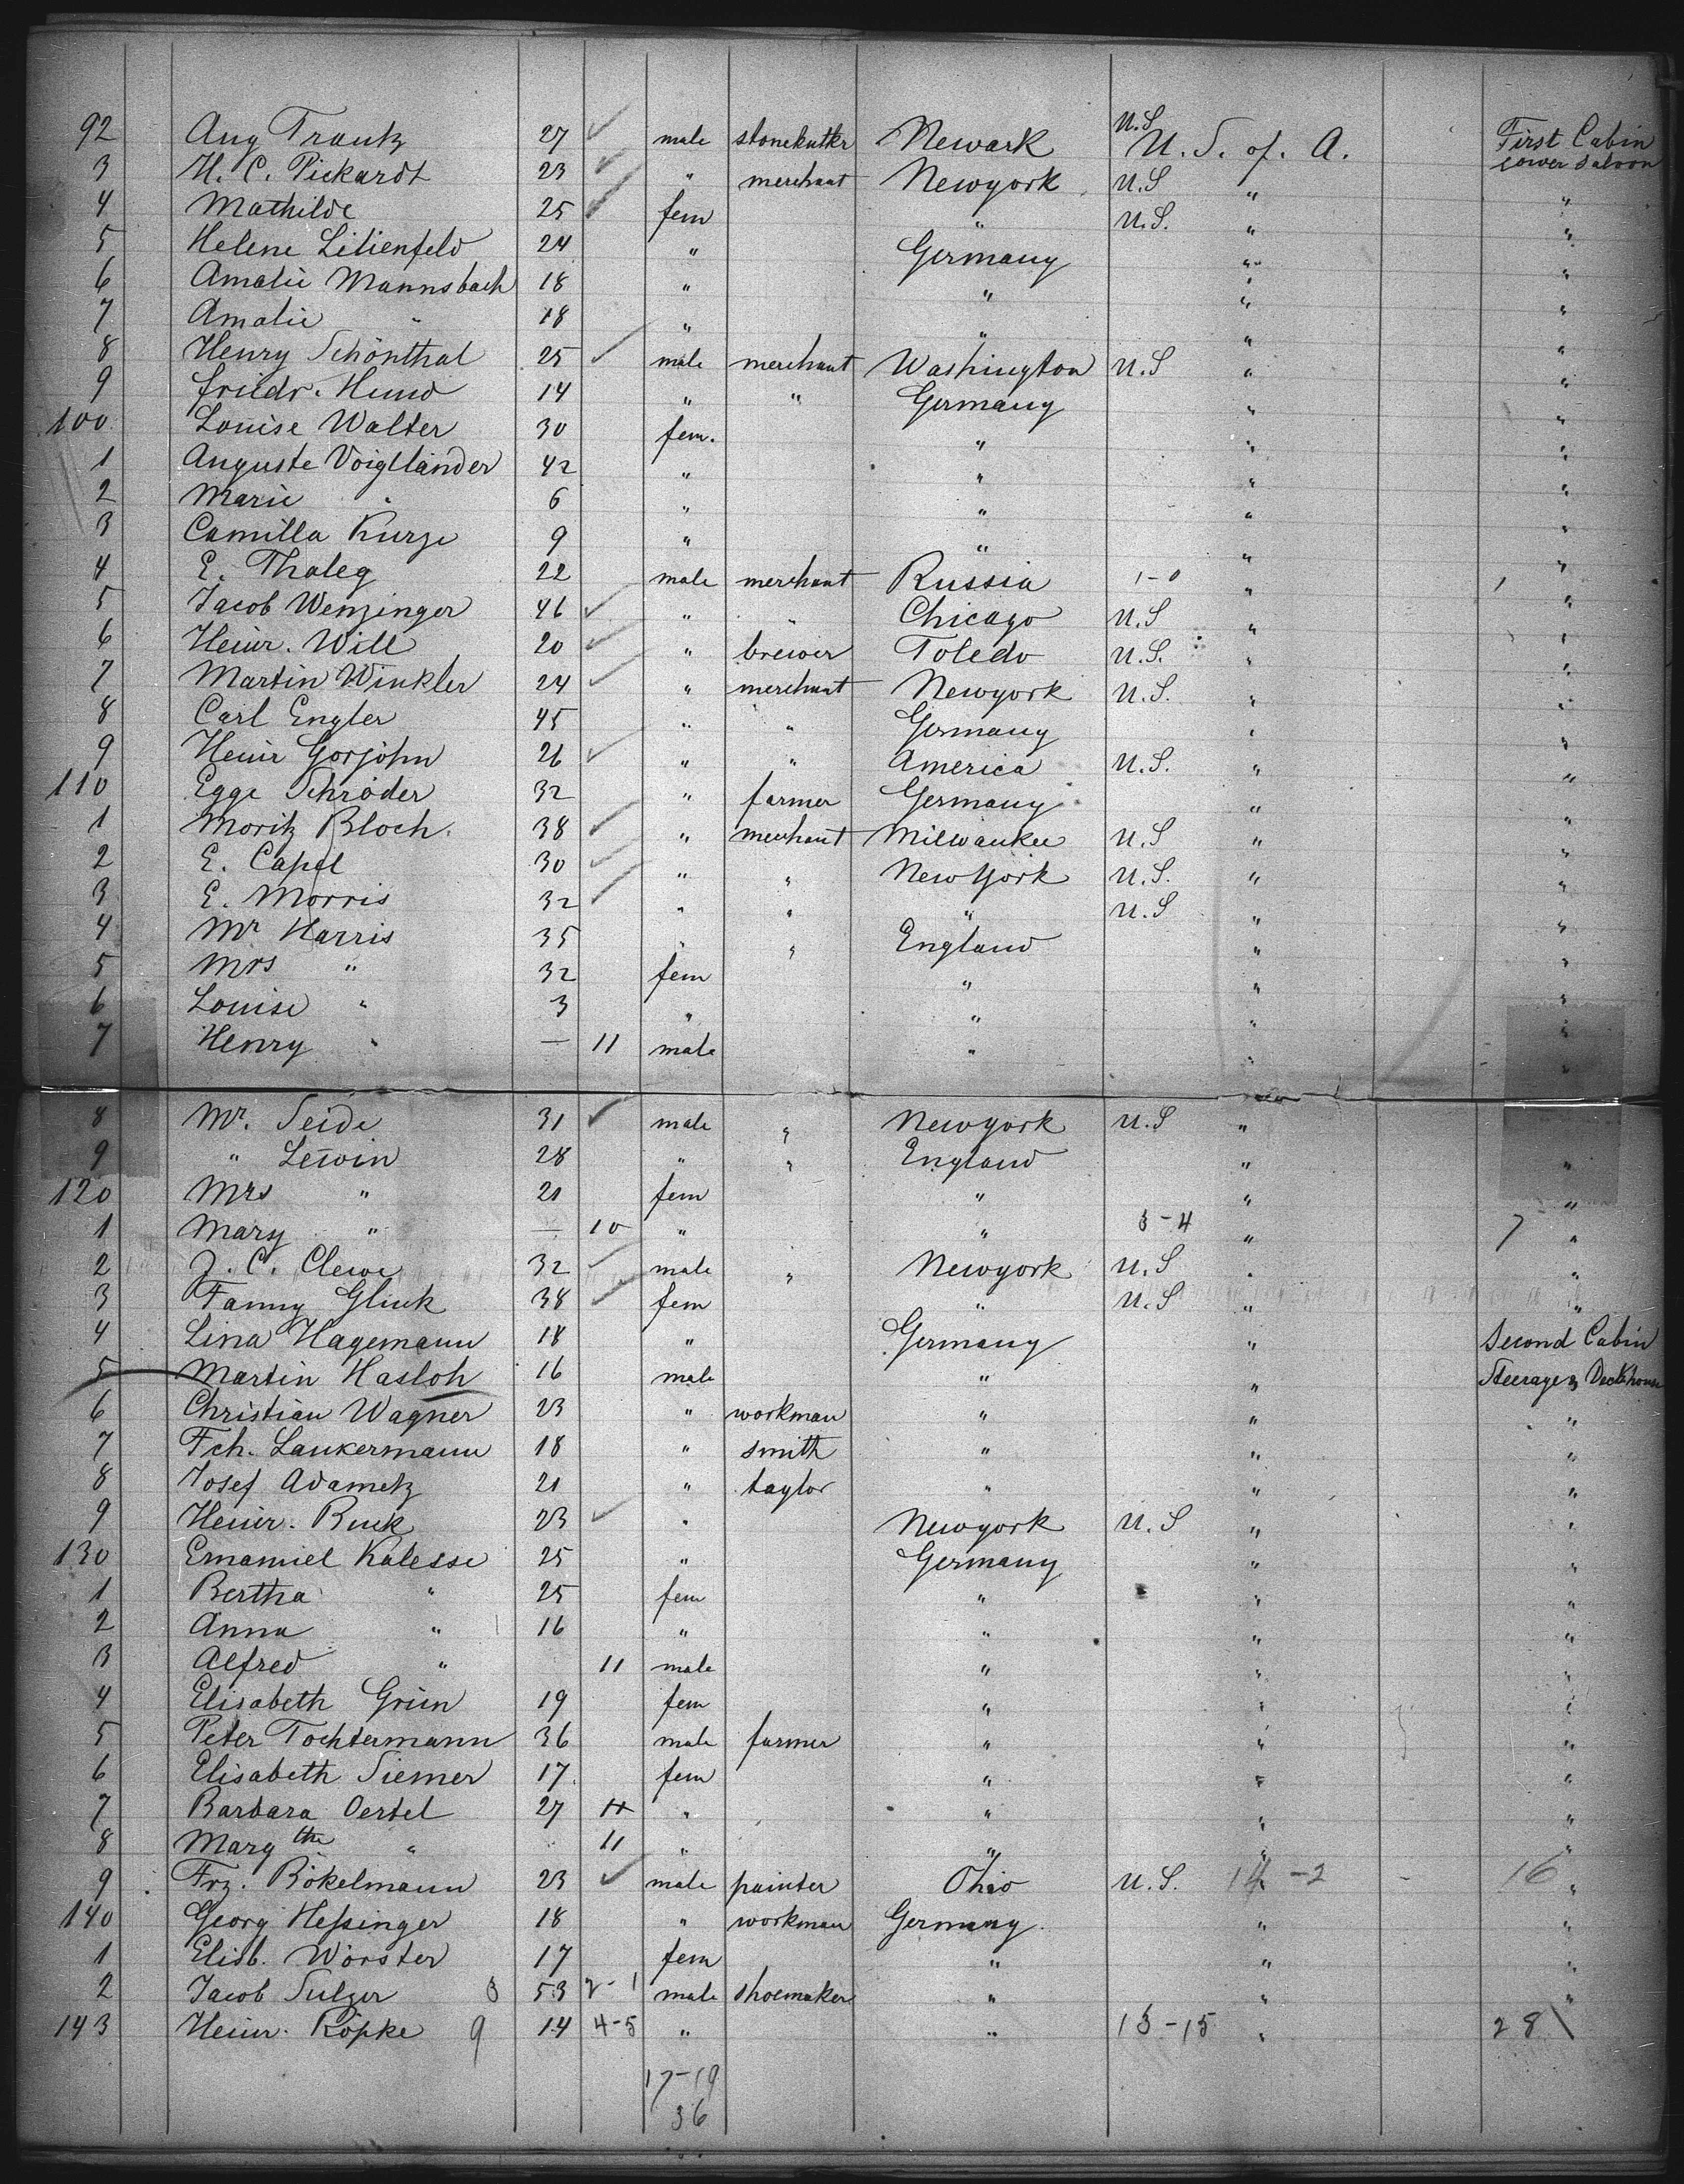 92 Aug Trautz 27 ✓ male stonekutter Newark U.S U. S. of. A. First Cabin lower Saloon
3 H. C. Pickardt 23 ✓ " merchant Newyork U.S " "
4 Mathilde 25 ✓ fem " U.S. " "
5 Helene Lilienfeld 24 " Germany " "
6 Amalie Mannsbach 18 " " " "
7 Amalie " 18 " " " "
8 Henry Schönthal 25 ✓ male merchant Washington U.S " "
9 Friedr. Hund 14 " " Germany " "
100 Louise Walter 30 fem. " " "
1 Auguste Voigtländer 42 " " " "
2 Marie " 6 " " " "
3 Camilla Kurze 9 " " " "
4 E. Thaleg 22 male merchant Russia 1-0 " "
5 Jacob Wenzinger 46 ✓ " " Chicago U.S " "
6 Heinr. Will 20 ✓ " brewer Toledo U.S. " "
7 Martin Winkler 24 ✓ " merchant Newyork U.S. " "
8 Carl Engler 45 " " Germany " "
9 Heinr Gorjohn 26 ✓ " " America U.S. " "
110 Egge Schröder 32 " farmer Germany " "
1 Moritz Bloch. 38 ✓ " merchant Milwaukee U.S " "
2 E. Capel 30 ✓ " " New York U.S. " "
3 E. Morris 32 ✓ " " " U.S " "
4 Mr Harris 35 " " England " "
5 Mrs " 32 fem " " "
6 Louise " 3 " " " "
7 Henry " — 11 male " " "
8 Mr. Seide 31 ✓ male " Newyork U.S " "
9 " Lewin 28 " " England " "
120 Mrs " 21 fem " " "
1 Mary " — 10 " " 3-4 " 7 "
2 J. C. Clewe 32 ✓ male " Newyork U.S " "
3 Fanny Gluck 38 ✓ fem " U.S " "
4 Lina Hagemann 18 " Germany " Second Cabin
5 Martin Hasloh 16 male " " Steerage & Deckhouse
6 Christian Wagner 23 " workman " " "
7 Fch. Lankermann 18 " smith " " "
8 Josef Adametz 21 " taylor " " "
9 Heinr. Buck 23 ✓ " Newyork U.S " "
130 Emanuel Kalesse 25 " Germany " "
1 Bertha " 25 fem " " "
2 Anna " 16 " " " "
3 Alfred " 11 male " " "
4 Elisabeth Grün 19 fem " " "
5 Peter Tochtermann 36 male farmer " " "
6 Elisabeth Siemer 17 fem " " "
7 Barbara Oertel 27 " " " "
8 Margthe " 11 " " " "
9 Frz. Bökelmann 23 ✓ male painter Ohio U.S. 14-2 " 16 "
140 Georg Hessinger 18 " workman Germany " "
1 Elisb. Wörster 17 fem " " "
2 Jacob Sulzer 3 53 2-1 male shoemaker " " "
143 Heinr. Röpke 9 14 4-5 " " 13-15 " 28 \
17-19
36